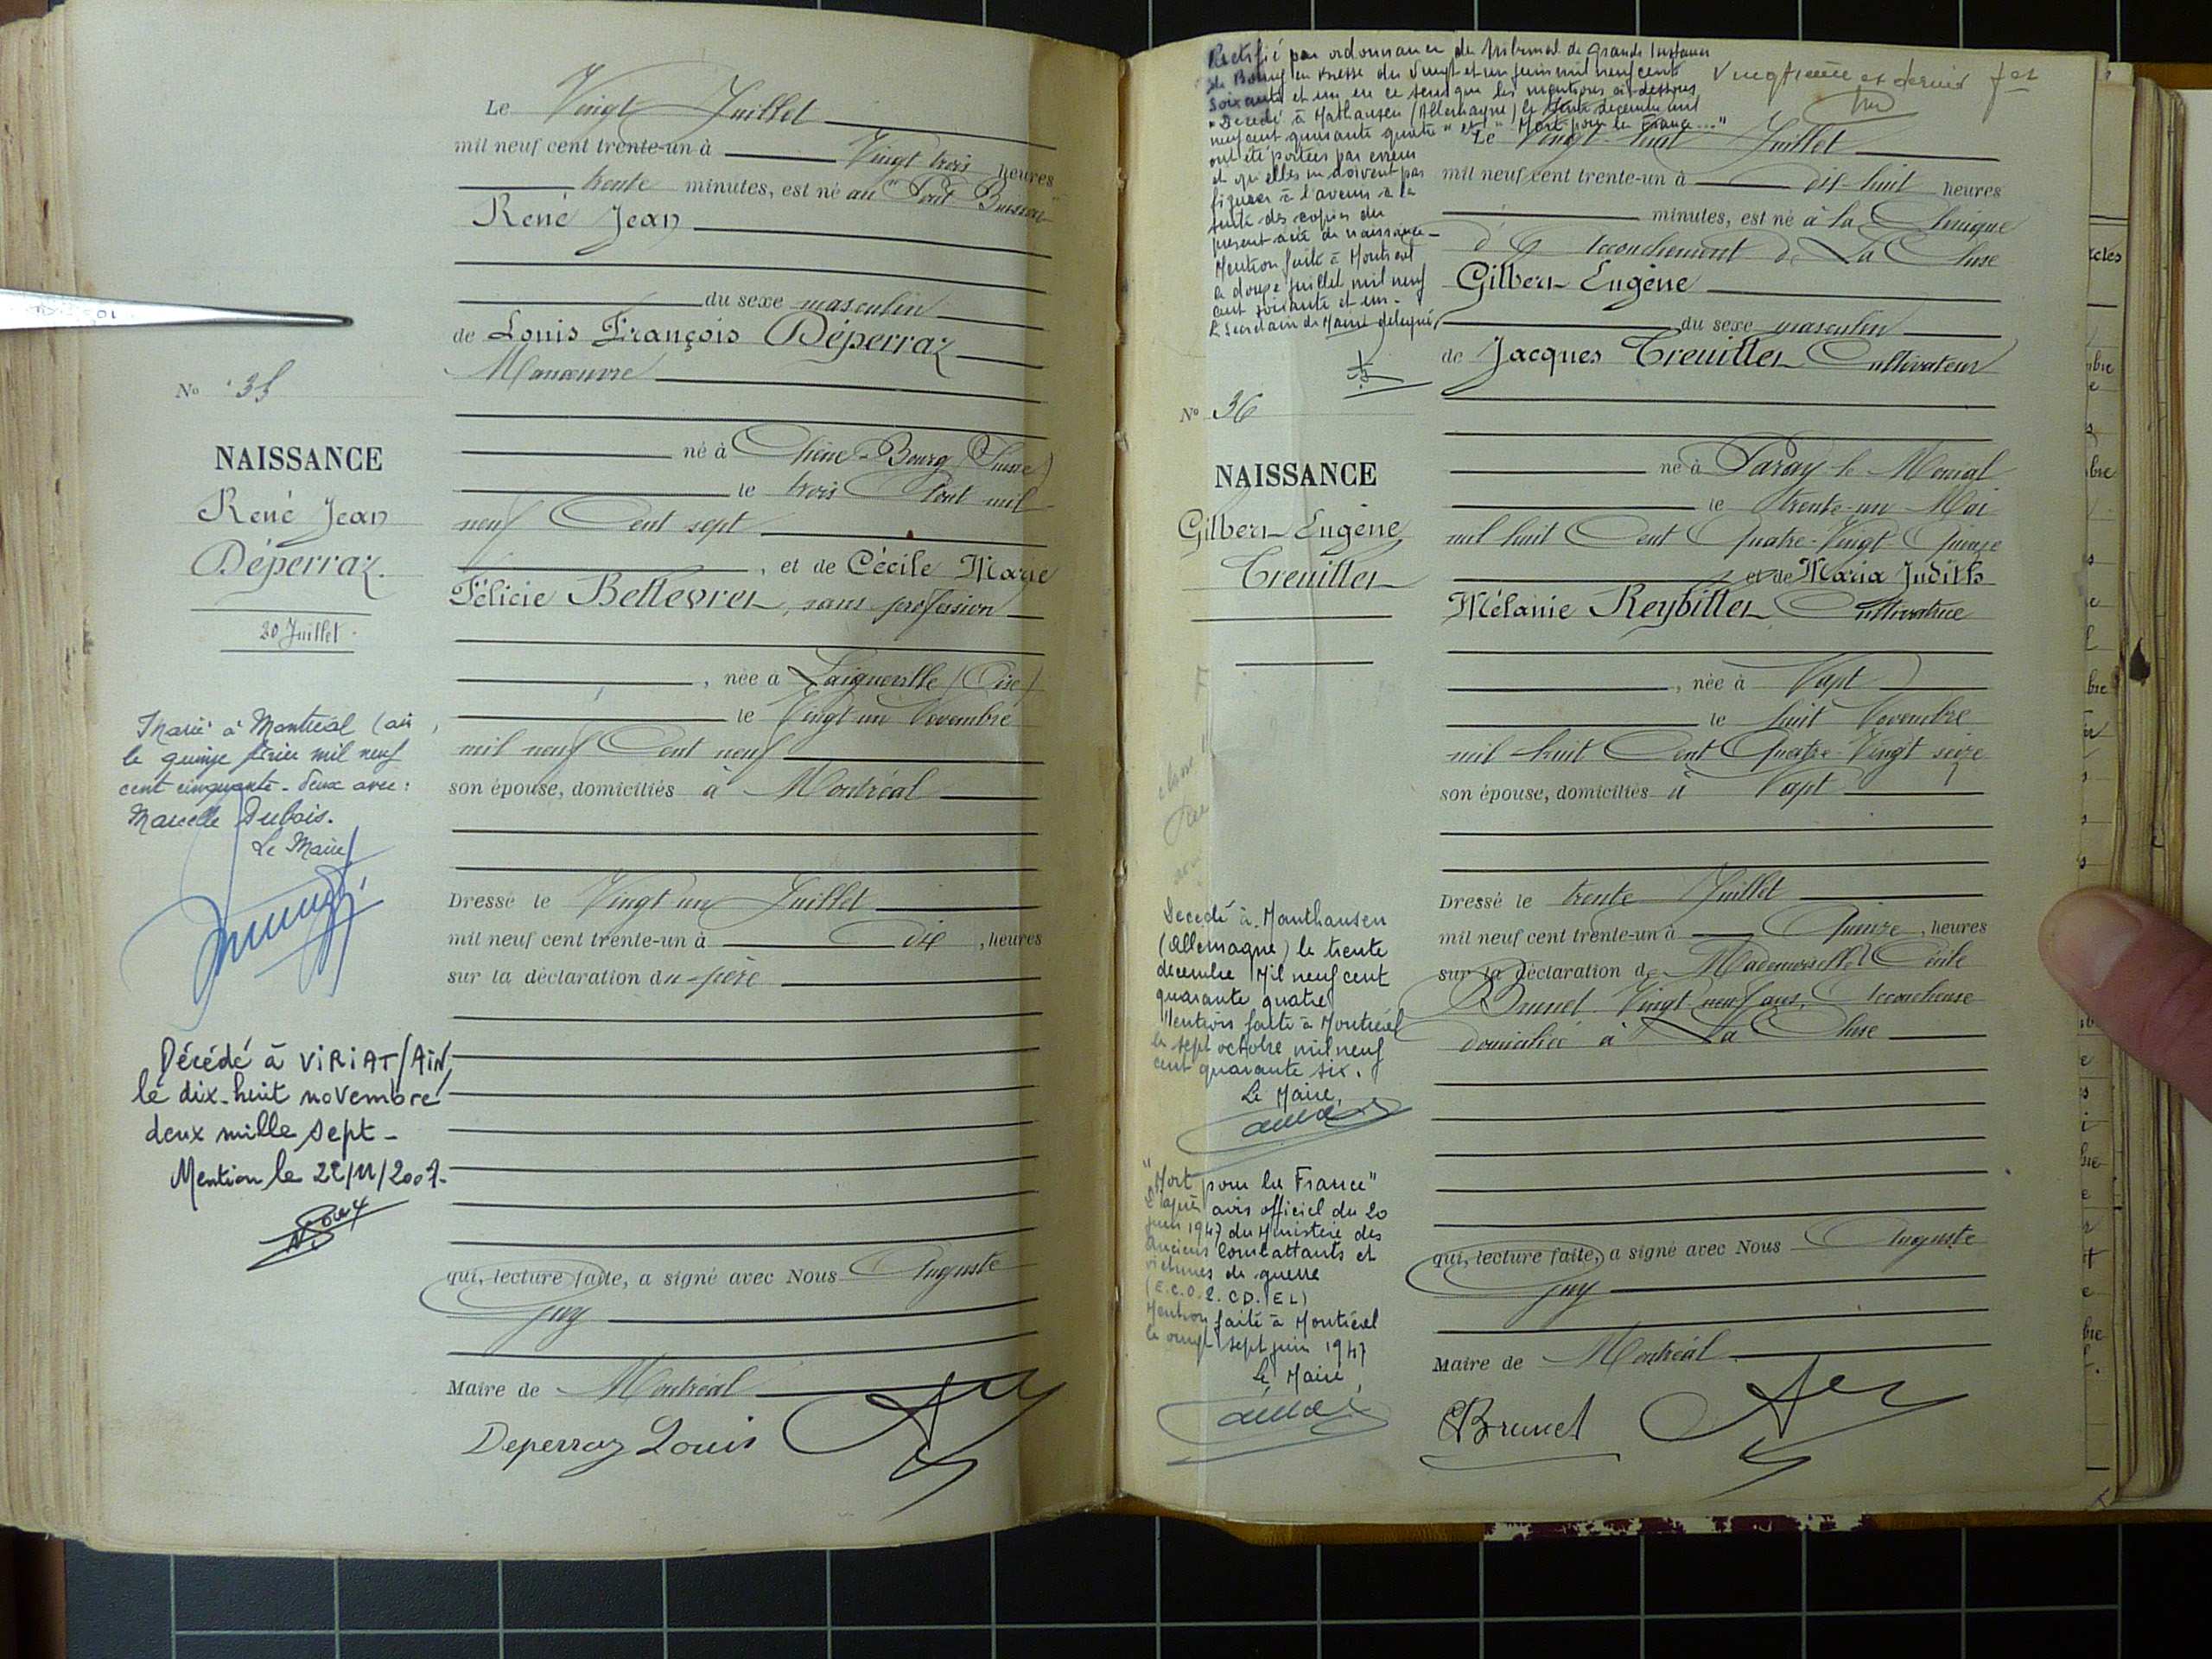 Le Vingt Juillet
mil neuf cent trente-un à Vingt trois heures
trente minutes, est né au
René Jean
du sexe masculin
de Louis François Déperraz
Manœuvre
né à Chêne-Bourg (Suisse)
le trois Aout mil
neuf Cent sept
, et de Cécile Marie
Félicie Bellevret, sans profession
, née à Laigneville (Oise)
le Vingt un Novembre
mil neuf Cent neuf
son épouse, domiciliés à Montréal
Dressé le Vingt un Juillet
mil neuf cent trente-un à dix, heures
sur la déclaration du père
qui, lecture faite, a signé avec Nous Auguste
Guy
Maire de Montréal
Deperraz Louis
No 35
NAISSANCE
René Jean
Déperraz.
20 Juillet
Marié à Montréal (Ain
le quinze mil neuf
cent cinquante-deux avec:
Marcelle Dubois.
Le Maire
Décédé à VIRIAT/AIN
le dix-huit novembre
deux mille sept-
Mention le 22/11/2007-
Rectifié par ordonnance du tribunal de Grande Instance
de Bourg en Bresse du Vingt et un juin mil neuf cent
soixante et un en ce sens que les mentions ci-dessous
"Décédé à Mathausen (Allemagne) le trente décembre mil
neuf cent quarante quatre" et "Mort pour la France..."
ont été portées par erreur
et qu'elles ne doivent pas
figurer à l'avenir à la
suite des copies du
présent acte de naissance-
Mention faite à Montréal
le douze juillet mil neuf
cent soixante et un-
Le Secrétaire de Mairie délégué,
Vingtième et dernier
Le Vingt-huit Juillet
mil neuf cent trente-un à dix-huit heures
minutes, est né à la Clinique
d'Accouchement de La Cluse
Gilbert Eugène
du sexe masculin
de Jacques Treuillet Cultivateur
né à Paray le Monial
le trente-un Mai
mil huit Cent Quatre-Vingt Quinze
et de Maria Judith
Mélanie Reybillet Cultivatrice
, née à Napt
le huit Novembre
mil huit Cent Quatre-Vingt seize
son épouse, domiciliés à Napt
Dressé le trente Juillet
mil neuf cent trente-un à Quinze, heures
sur la déclaration de Mademoiselle Cécile
Brunet Vingt neuf ans, Accoucheuse
domiciliée à La Cluse
qui, lecture faite, a signé avec Nous Auguste
Guy
Maire de Montréal
CBrunet
No 36
NAISSANCE
Gilbert Eugène
Treuillet
Décédé à Mauthausen
(Allemagne) le trente
décembre Mil neuf cent
quarante quatre
Mention faite à Montréal
le sept octobre mil neuf
cent quarante six.
Le Maire,
"Mort pour la France"
D'après avis officiel du 20
juin 1947 du Ministère des
Anciens Combattants et
victimes de guerre
Mention faite à Montréal
le vingt sept juin 1947
Le Maire,